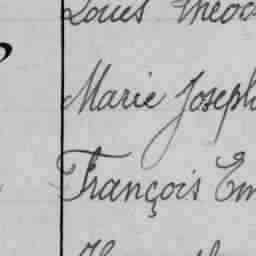 Louis Théod
Marie Joseph
François Em